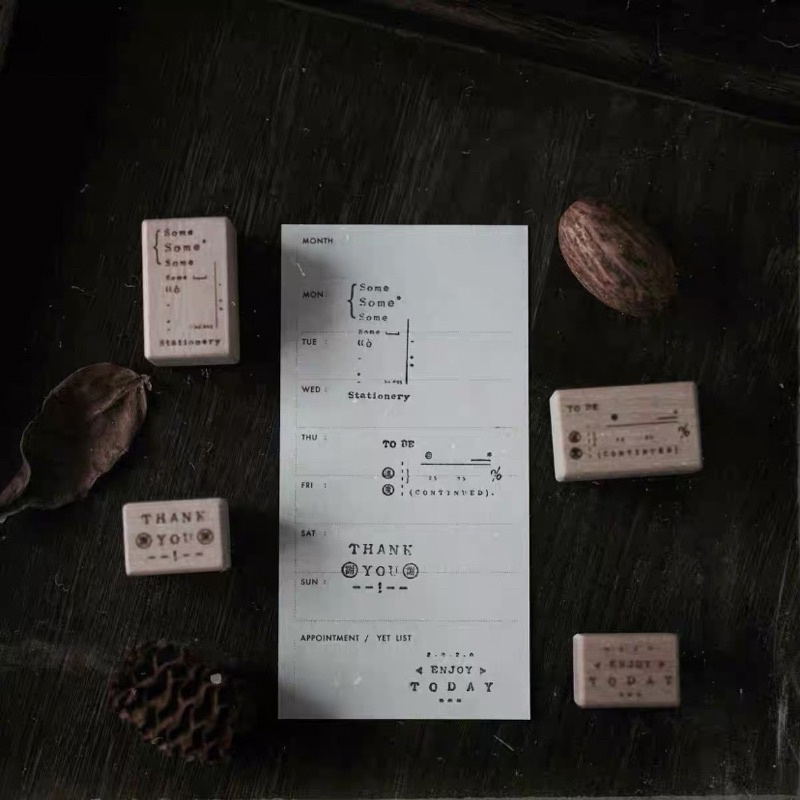 MONTH
MON :
{ Some
Some*
Some
Some
TUE :
WED :
Stationery
THU :
TO BE
FRI :
(CONTINUED).
%
SAT :
THANK
YOU
--!--
SUN :
APPOINTMENT / YET LIST
ENJOY
TODAY
Some
Some*
Some
Some
Stationery
THANK
YOU
--!--
TO BE
%
(CONTINUED)
ENJOY
TODAY